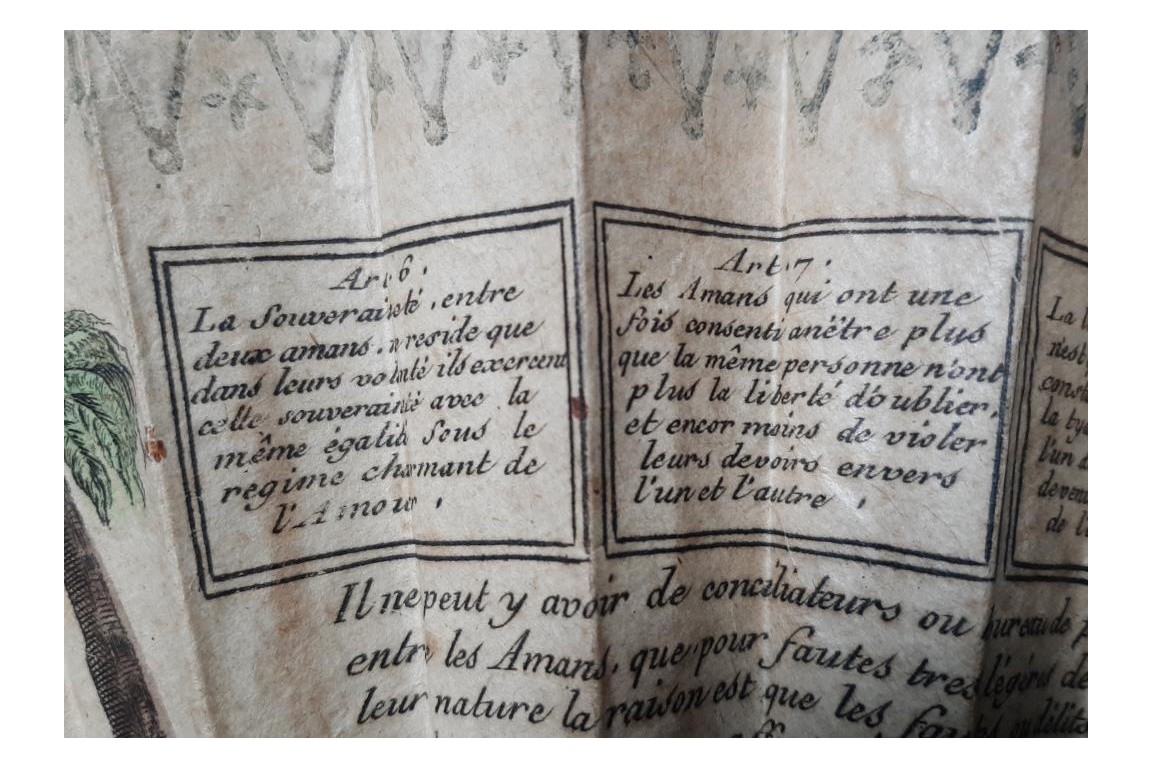 Art 6.
La Souveraineté, entre
deux amans, n reside que
dans leurs volonté ils exercent
cette souveraineté avec la
même égalité sous le
regime charmant de
l'Amour,
Art 7.
Les Amans qui ont une
fois consenti anêtre plus
que la même personne n'ont
plus la liberté d'oublier,
et encor moins de violer
leurs devoirs envers
l'un et l'autre,
n'est
la
l'un
de
Il ne peut y avoir de conciliateurs ou bureau de
entre les Amans, que pour fautes tres légéres de
leur nature la raison est que les délits